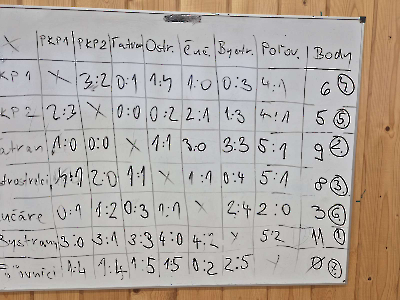 X PKP1 PKP2 Tatran Ostr. Čuč. Bystr. Poľov. Body
KP 1 X 3:2 0:1 1:4 1:0 0:3 4:1 6 4
KP 2 2:3 X 0:0 0:2 2:1 1:3 4:1 5 5
atran 1:0 0:0 1:1 3:0 3:3 5:1 9 2
strostrelci 4:1 2:0 1:1 X 1:1 0:4 5:1 8 3
učáre 0:1 1:2 0:3 1:1 X 2:4 2:0 3 6
Bystran 3:0 3:1 3:3 4:0 4:2 X 5:2 11 1
ovníci 1:4 1:4 1:5 1:5 0:2 2:5 X 0 7